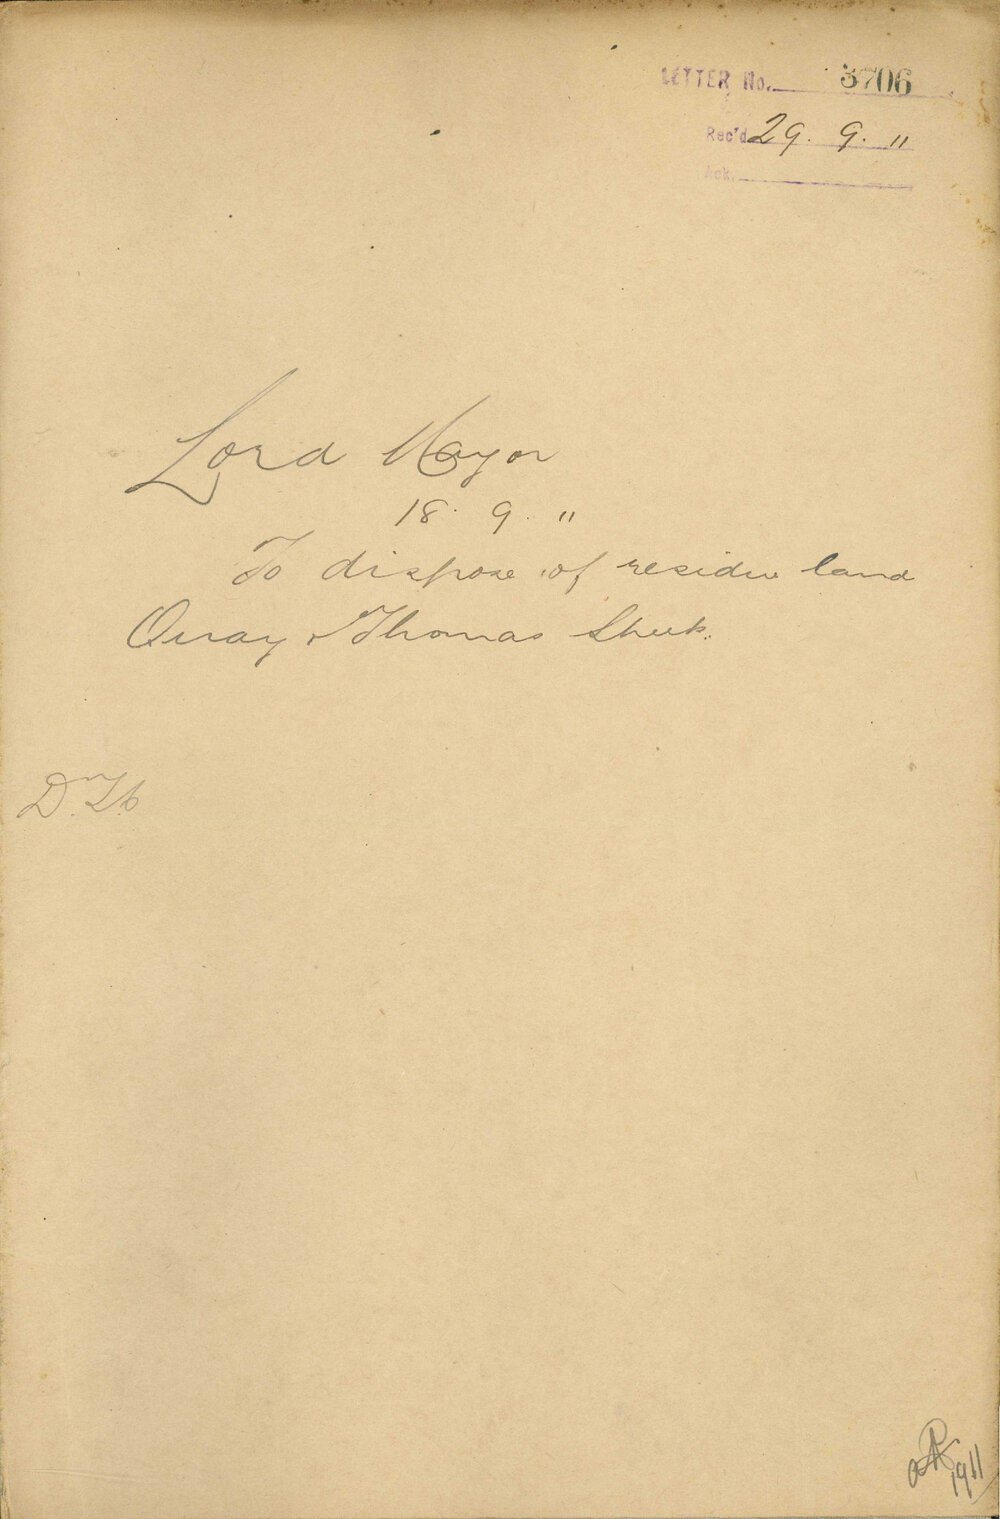 LETTER No. 3706
Rec'd 29. 9. 11
Ack.
Lord Mayor
18. 9. 11
To dispose of residue land
Quay & Thomas Streets.
1911